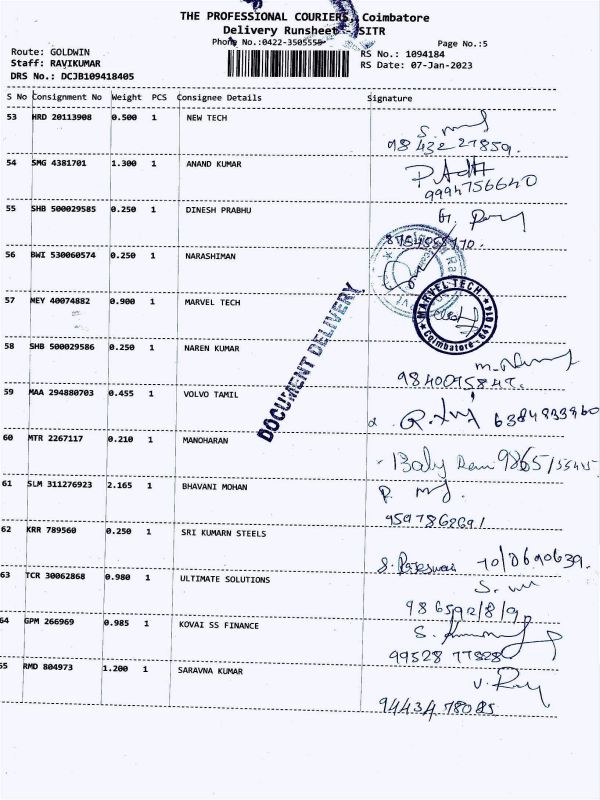 THE PROFESSIONAL COURIERS, Coimbatore
Delivery Runsheet - SITR
Phone No.:0422-3505555 Page No.:5
Route: GOLDWIN RS No.: 1094184
Staff: RAVIKUMAR RS Date: 07-Jan-2023
DRS No.: DCJB109418405
S No Consignment No Weight PCS Consignee Details Signature
53 HRD 20113908 0.500 1 NEW TECH
98432 27859.
54 SMG 4381701 1.300 1 ANAND KUMAR
9994756640
55 SHB 500029585 0.250 1 DINESH PRABHU
56 BWI 530060574 0.250 1 NARASHIMAN
57 MEY 40074882 0.900 1 MARVEL TECH
MARVEL TECH
Coimbatore - 641014
58 SHB 500029586 0.250 1 NAREN KUMAR
59 MAA 294880703 0.455 1 VOLVO TAMIL
6384833960
60 MTR 2267117 0.210 1 MANOHARAN
61 SLM 311276923 2.165 1 BHAVANI MOHAN
DOCUMENT DELIVERY
62 KRR 789560 0.250 1 SRI KUMARN STEELS
63 TCR 30062868 0.980 1 ULTIMATE SOLUTIONS
64 GPM 266969 0.985 1 KOVAI SS FINANCE
99528 77828
65 RMD 804973 1.200 1 SARAVNA KUMAR
94434 78085